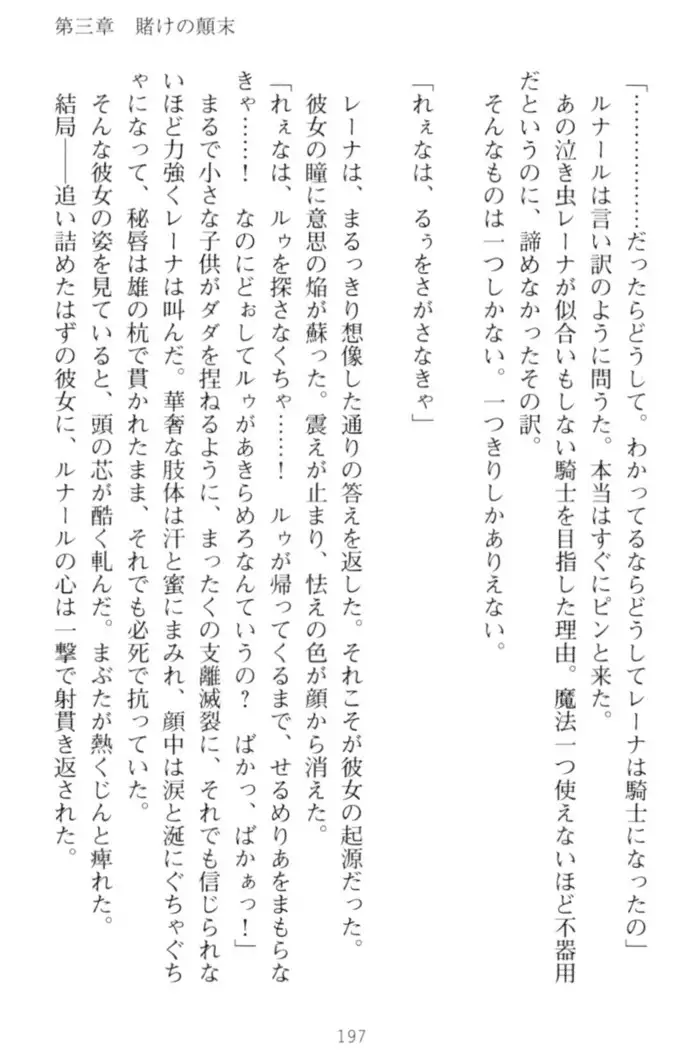 第三章　賭けの顛末
「………………だったらどうして。わかってるならどうしてレーナは騎士になったの」
ルナールは言い訳のように問うた。本当はすぐにピンと来た。
あの泣き虫レーナが似合いもしない騎士を目指した理由。魔法一つ使えないほど不器用
だというのに、諦めなかったその訳。
そんなものは一つしかない。一つきりしかありえない。
「れぇなは、るぅをさがさなきゃ」
レーナは、まるっきり想像した通りの答えを返した。それこそが彼女の起源だった。
彼女の瞳に意思の焔が蘇った。震えが止まり、怯えの色が顔から消えた。
「れぇなは、ルゥを探さなくちゃ……！　ルゥが帰ってくるまで、せるめりあをまもらな
きゃ……！　なのにどぉしてルゥがあきらめろなんていうの？　ばかっ、ばかぁっ！」
まるで小さな子供がダダを捏ねるように、まったくの支離滅裂に、それでも信じられな
いほど力強くレーナは叫んだ。華奢な肢体は汗と蜜にまみれ、顔中は涙と涎にぐちゃぐち
ゃになって、秘唇は雄の杭で貫かれたまま、それでも必死で抗っていた。
そんな彼女の姿を見ていると、頭の芯が酷く軋んだ。まぶたが熱くじんと痺れた。
結局――追い詰めたはずの彼女に、ルナールの心は一撃で射貫き返された。
197